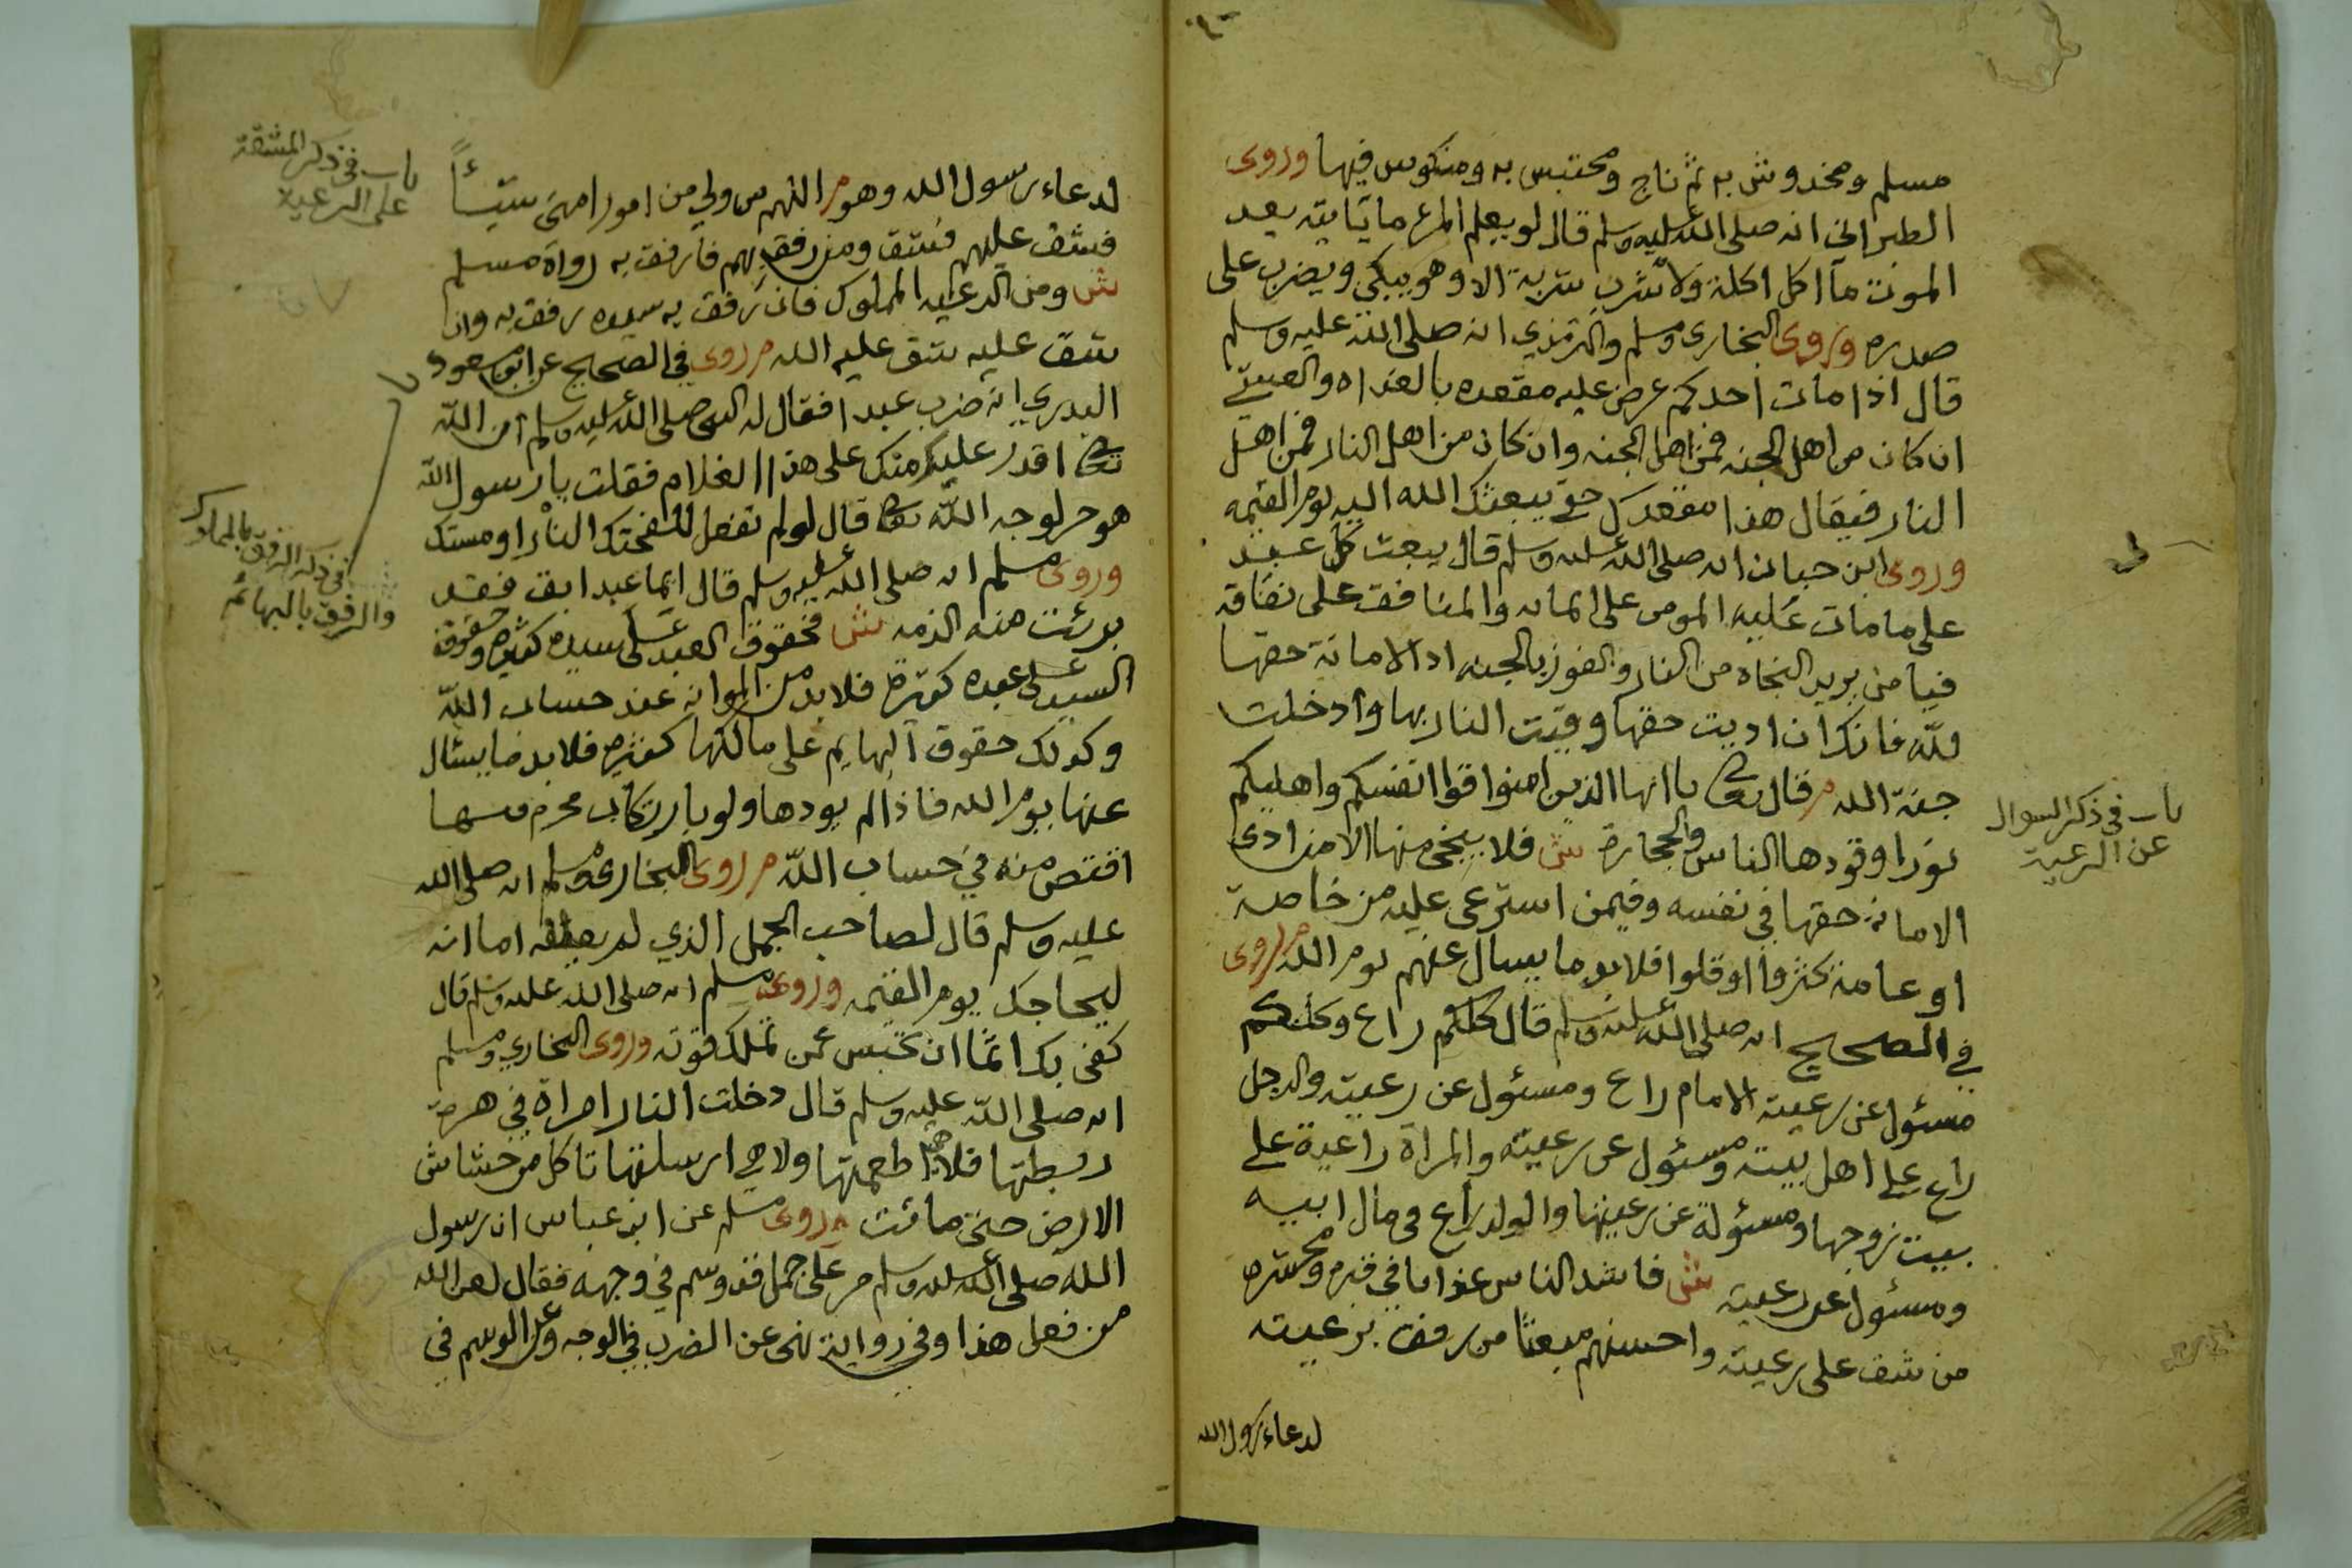 مسلم ومخدوش به ثم ناج ومحتبس به ومنكوس فيها وروى
الطبراني انه صلى الله عليه وسلم قال لو يعلم المرء ما ياتيه بعد
الموت ما اكل اكلة ولا شرب شربة الا وهو يبكي ويضرب على
صدره وروى البخارى ومسلم والترمذي انه صلى الله عليه وسلم
قال اذا مات احدكم عرض عليه مقعده بالغداه والعشي
ان كان من اهل الجنه فمن اهل الجنه وان كان من اهل النار فمن اهل
النار فيقال هذا مقعدك حتى يبعثك الله اليه يوم القيمه
وروى ابن حبان انه صلى الله عليه وسلم قال يبعث كل عبد
على ما مات عليه المومن على ايمانه والمنافق على نفاقه
فيا من يريد النجاه من النار والفوز بالجنه اد الامانة حقها
لله فانك ان اديت حقها وقيت النار بها وادخلت
جنة الله م قال تعالى يا ايها الذين امنوا قوا انفسكم واهليكم
نورا وقودها الناس والحجارة ش فلا ينجى منها الا من ادى
الامانة حقها في نفسه وفيمن استرعى عليه من خاصة
او عامة كثروا او قلوا فلا بد ما يسال عنهم يوم الله م روى
في الصحيح انه صلى الله عليه وسلم قال كلكم راع وكلكم
مسئول عن رعيته الامام راع ومسئول عن رعيته والرجل
راع على اهل بيته ومسئول عن رعيته والمراة راعية على
بيت زوجها ومسئولة عن رعيتها والولد راع في مال ابيه
ومسئول عن رعيته ش فاشد الناس عذابا في قبره ومحشره
من شق على رعيته واحسنهم مبعثا من رفق برعيته
لدعاء رسول الله
باب في ذكر السوال
عن الرعية
لدعاء رسول الله وهو م اللهم من ولي من امور امتى شيئاً
فشق عليهم فشق ومن رفق بهم فارفق به رواه مسلم
ش ومن الرعيه المملوك فان رفق به سيده رفق به وان
شق عليه شق عليه الله م روى في الصحيح عن ابو مسعود
البدري انه ضرب عبدا فقال له النبى صلى الله عليه وسلم ان الله
تعالى اقدر عليك منك على هذا الغلام فقلت يا رسول الله
هو حر لوجه الله تعالى قال لو لم تفعل للفحتك النار او مستك
وروى مسلم انه صلى الله عليه وسلم قال ايما عبد ابق فقد
برئت منه الذمه ش فحقوق العبد على سيده كثيره وحقوق
السيد على عبده كثيرة فلا بد من الموازنه عند حساب الله
وكذلك حقوق البهايم على مالكها كثيره فلا بد ما يسئال
عنها يوم الله فاذا لم يودها ولو بارتكاب محرم
اقتص منه في حساب الله م روى البخارى ومسلم انه صلى الله
عليه وسلم قال لصاحب الجمل الذي لم يعلفه اما انه
ليحاجك يوم القيمه وروى مسلم انه صلى الله عليه وسلم قال
كفى بك اثما ان تحبس عمن تملك قوته وروى البخاري ومسلم
انه صلى الله عليه وسلم قال دخلت النار امراة في هرة
ربطتها فلا هي اطعمتها ولا هي ارسلتها تاكل من خشاش
الارض حتى ماتت وروى مسلم عن ابن عباس ان رسول
الله صلى الله عليه وسلم مر على جمل قد وسم في وجهه فقال لعن الله
من فعل هذا وفي رواية نهى عن الضرب في الوجه وعن الوسم في
باب في ذكر المشقة
على الرعية
في ذكر الرفق بالمملوك
والرفق بالبهائم